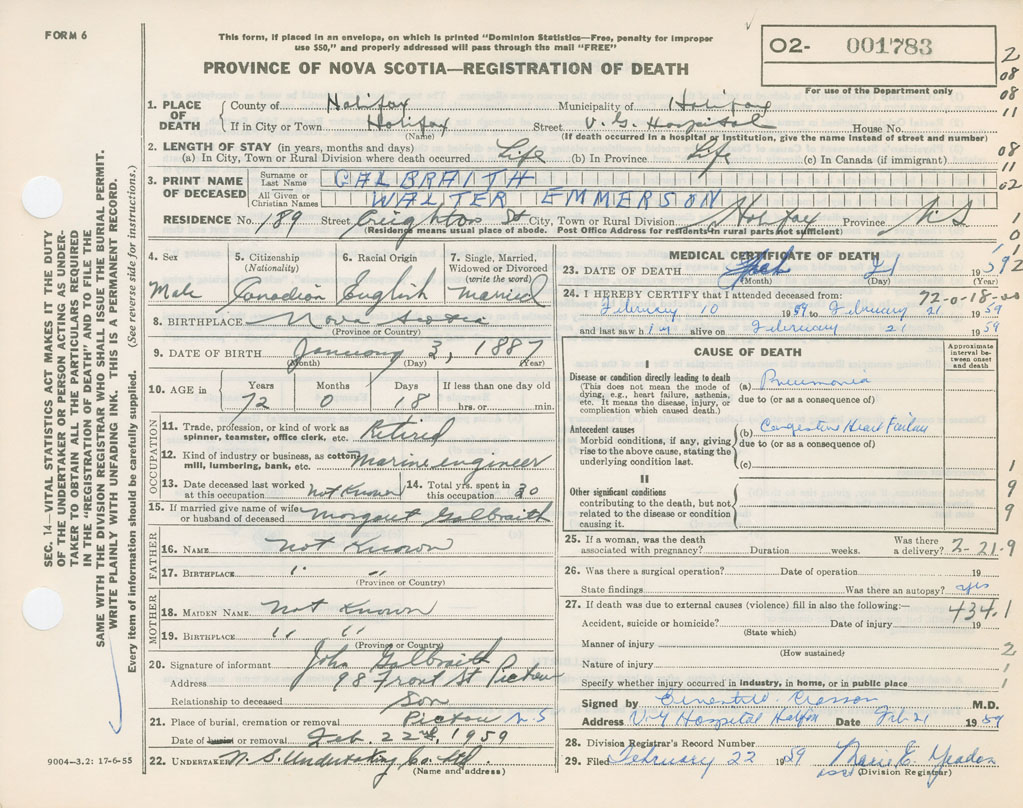 FORM 6
This form, if placed in an envelope, on which is printed "Dominion Statistics—Free, penalty for improper
use $50," and properly addressed will pass through the mail "FREE"
PROVINCE OF NOVA SCOTIA—REGISTRATION OF DEATH
O2- 001783
For use of the Department only
2
08
08
11
08
11
02
1
0
1
2
SEC. 14—VITAL STATISTICS ACT MAKES IT THE DUTY
OF THE UNDERTAKER OR PERSON ACTING AS UNDER-
TAKER TO OBTAIN ALL THE PARTICULARS REQUIRED
IN THE "REGISTRATION OF DEATH" AND TO FILE THE
SAME WITH THE DIVISION REGISTRAR WHO SHALL ISSUE THE BURIAL PERMIT.
WRITE PLAINLY WITH UNFADING INK. THIS IS A PERMANENT RECORD.
Every item of information should be carefully supplied. (See reverse side for instructions.)
1. PLACE OF DEATH County of Halifax Municipality of Halifax
If in City or Town Halifax Street V.G. Hospital House No.
(Name) (If death occurred in a hospital or institution, give the name instead of street and number)
2. LENGTH OF STAY (in years, months and days)
(a) In City, Town or Rural Division where death occurred Life (b) In Province Life (c) In Canada (if immigrant)
3. PRINT NAME OF DECEASED Surname or Last Name GALBRAITH
All Given or Christian Names WALTER EMMERSON
RESIDENCE No. 189 Street Creighton St City, Town or Rural Division Halifax Province NS
(Residence means usual place of abode. Post Office Address for residents in rural parts not sufficient)
4. Sex 5. Citizenship (Nationality) 6. Racial Origin 7. Single, Married, Widowed or Divorced (write the word)
Male Canadian English Married
8. BIRTHPLACE Nova Scotia
(Province or Country)
9. DATE OF BIRTH January 3, 1887
(Month) (Day) (Year)
10. AGE in Years Months Days If less than one day old
72 0 18 hrs. or min.
OCCUPATION
11. Trade, profession, or kind of work as
spinner, teamster, office clerk, etc. Retired
12. Kind of industry or business, as cotton
mill, lumbering, bank, etc. Marine engineer
13. Date deceased last worked at this occupation Not Known 14. Total yrs. spent in this occupation 30
15. If married give name of wife
or husband of deceased Margaret Galbraith
FATHER
16. NAME Not Known
17. BIRTHPLACE " "
(Province or Country)
MOTHER
18. MAIDEN NAME Not Known
19. BIRTHPLACE " "
(Province or Country)
20. Signature of informant John Galbraith
Address 98 Front St Pictou
Relationship to deceased Son
21. Place of burial, cremation or removal Pictou N.S
Date of burial or removal Feb. 22nd, 1959
22. UNDERTAKER N.S. Undertaking Co. Ltd.
(Name and address)
9004-3.2: 17-6-55
MEDICAL CERTIFICATE OF DEATH
23. DATE OF DEATH Feb 21 1959
(Month) (Day) (Year)
24. I HEREBY CERTIFY that I attended deceased from: 72-0-18-00
February 10 1959 to February 21 1959
and last saw him alive on February 21 1959
CAUSE OF DEATH
Approximate interval between onset and death
I
Disease or condition directly leading to death
(This does not mean the mode of
dying, e.g., heart failure, asthenia,
etc. It means the disease, injury, or
complication which caused death.)
(a) Pneumonia
due to (or as a consequence of)
Antecedent causes
Morbid conditions, if any, giving
rise to the above cause, stating the
underlying condition last.
(b) Congestive Heart Failure
due to (or as a consequence of)
(c)
II
Other significant conditions
contributing to the death, but not
related to the disease or condition
causing it.
1
9
9
9
25. If a woman, was the death
associated with pregnancy? Duration weeks. Was there a delivery? 2-21-9
26. Was there a surgical operation? Date of operation 19
State findings Was there an autopsy? yes
27. If death was due to external causes (violence) fill in also the following:— 434.1
Accident, suicide or homicide? Date of injury 19
(State which)
Manner of injury 2
(How sustained)
Nature of injury 1
Specify whether injury occurred in industry, in home, or in public place 1
Signed by M.D.
Address V.G Hospital Halifax Date Feb 21 1959
28. Division Registrar's Record Number
29. Filed February 22 1959 Marie E. Yeadon
(Division Registrar)